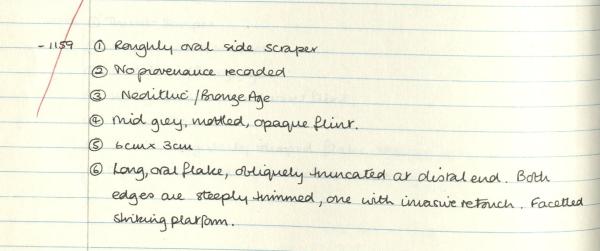 -1159 ① Roughly oval side scraper
② No provenance recorded
③ Neolithic/Bronze Age
④ Mid grey, mottled, opaque flint.
⑤ 6cm x 3cm
⑥ Long, oval flake, obliquely truncated at distal end. Both
edges are steeply trimmed, one with invasive retouch. Facetted
striking platform.